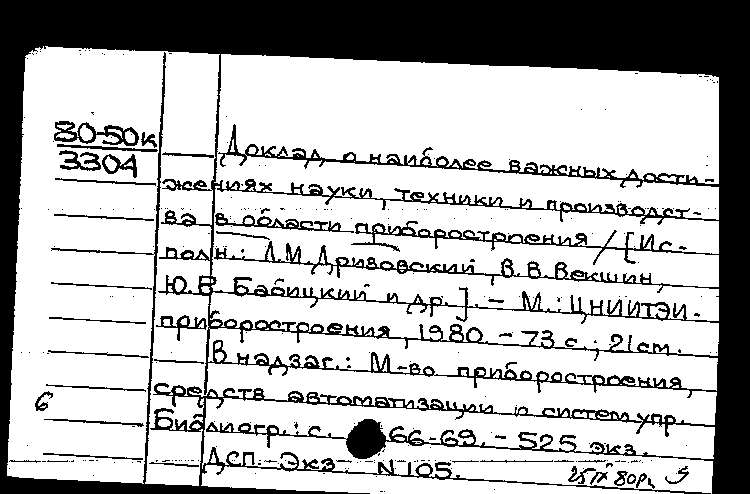 80-50к
3304
Доклад о наиболее важных дости-
жениях науки, техники и производст-
ва в области приборостроения / [Ис-
полн.: Л.М. Дризовский, В.В. Векшин,
Ю.В. Бабицкий и др.]. - М.: ЦНИИТЭИ-
приборостроения, 1980. - 73 с.; 21 см.
В надзаг.: М-во приборостроения,
средств автоматизации и систем упр.
6
Библиогр.: с. 66-69. - 525 экз.
ДСП Экз. N 105.
25 IX 80р.